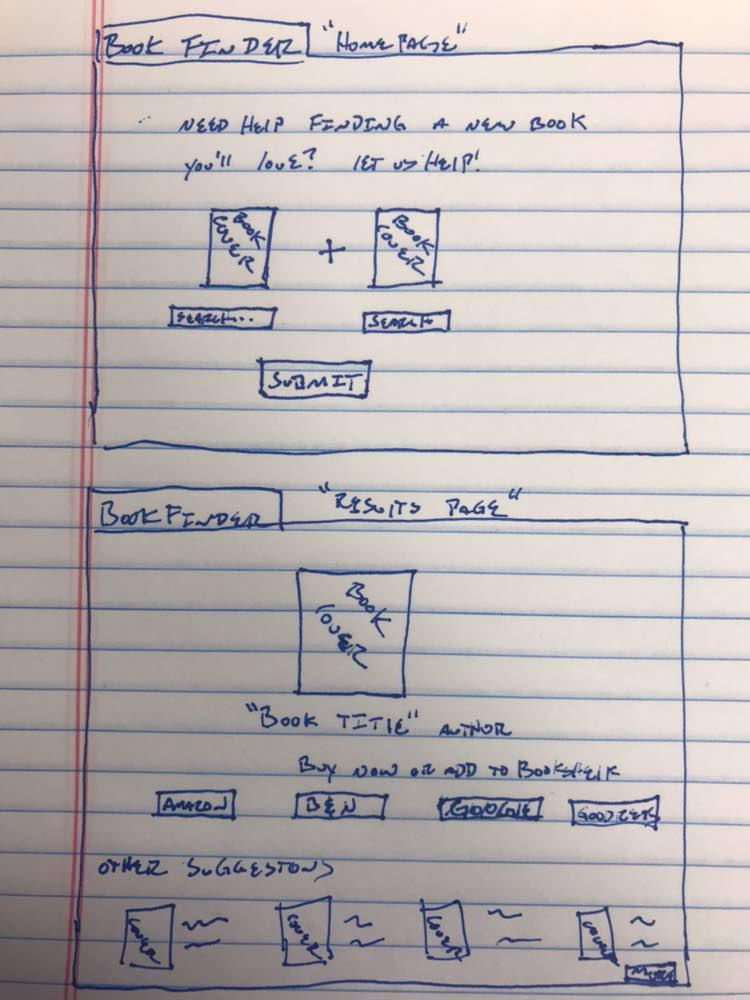 BOOK FINDER "HOMEPAGE"
NEED HELP FINDING A NEW BOOK
you'll love? LET US HELP!
BOOK COVER + BOOK COVER
SEARCH... SEARCH
SUBMIT
BOOKFINDER "RESULTS PAGE"
BOOK COVER
"BOOK TITLE" AUTHOR
BUY NOW OR ADD TO BOOKSHELF
AMAZON B&N GOOGLE GOODREADS
OTHER SUGGESTONS
COVER COVER COVER COVER
MORE